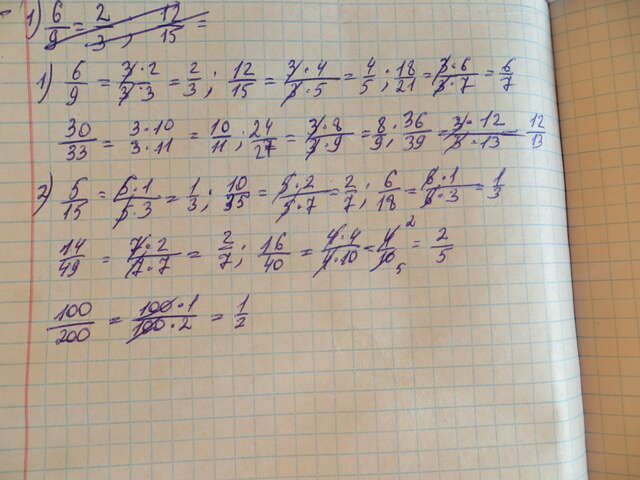 1) 6/9 = 2/3 ; 12/15 =
1) 6/9 = 3·2/3·3 = 2/3 ; 12/15 = 3·4/3·5 = 4/5 ; 18/21 = 3·6/3·7 = 6/7
30/33 = 3·10/3·11 = 10/11 ; 24/27 = 3·8/3·9 = 8/9 ; 36/39 = 3·12/3·13 12/13
2) 5/15 = 5·1/5·3 = 1/3 ; 10/35 = 5·2/5·7 = 2/7 ; 6/18 = 6·1/6·3 = 1/3
14/49 = 7·2/7·7 = 2/7 ; 16/40 = 4·4/4·10 = 4 2/10 5 = 2/5
100/200 = 100·1/100·2 = 1/2